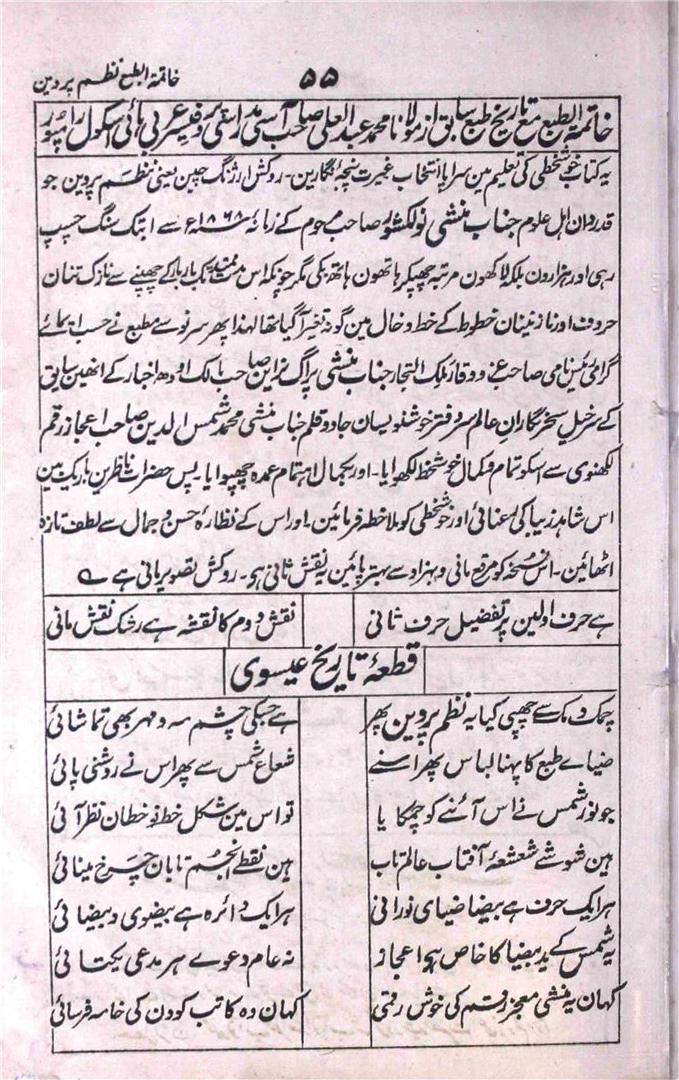 خاتمة الطبع نظم پروین
۵۵
خاتمة الطبع مع تاریخ طبع سابق از مولانا محمد عبد العلی صاحب آسی مدراسی پروفیسر عربی ہائی اسکول رامپور
یہ کتاب خوشخطی کی تعلیم مین سراپا انتخاب غیرت پنجۂ نگارین۔ روکش ارژنگ چین یعنی نظم پروین جو
قدردان اہل علوم جناب منشی نولکشور صاحب مرحوم کے زمانہ ۱۸۶۸ء سے ابتک سنگ حسپ
رہی اور ہزارون بلکہ لاکھون مرتبہ چھپکر ہاتھون ہاتھ بکی مگر چونکہ اس مدت مدید تک بار بار کے چھپنے سے نازک تنان
حروف اور نازنینان خطوط کے خط و خال مین گونہ تغیر آگیا تھا لہذا پھر سر نو سے مطبع نے حسب ایمائے
گرامی رئیس نامی صاحب عز و وقار ملک التجار جناب منشی پراگ نراین صاحب مالک اودھ اخبار کے انھین سابق
کے سرخیل سحر نگاران عالم سر دفتر خوشنویسان جادو قلم جناب منشی محمد شمس الدین صاحب اعجاز رقم
لکھنوی سے اسکو تمام و کمال خوشخط لکھوایا۔ اور بکمال اہتمام عمدہ چھپوایا۔ پس حضرات ناظرین باریک بین
اس شاہد زیبا کی رعنائی اور خوشخطی کو ملاحظہ فرمائین۔ اور اس کے نظارۂ حسن و جمال سے لطف تازہ
اٹھائین۔ اس نسخہ کو مرقع مانی و بہزاد سے بہتر پائین یہ نقش ثانی ہی۔ روکش تصویر مانی ہے ؎
ہے حرف اولین پر تفضیل حرف ثانی نقش دوم کا نقشہ ہے رشک نقش مانی
قطعۂ تاریخ عیسوی
چمک دمک سے چھپی کیا یہ نظم پروین پھر ہے جسکی چشم مہ و مہر بھی تماشائی
ضیاے طبع کا پہنا لباس پھر اسنے شعاع شمس سے پھر اس نے روشنی پائی
جو نور شمس نے اس آئنے کو چمکایا تو اس مین شکل خط نو خطان نظر آئی
ہین شوشے شعشعۂ آفتاب عالم تاب ہین نقطے انجم تابان چرخ مینائی
ہر ایک حرف ہے بیضا ضیای نورانی ہر ایک دائرہ ہے بیضوی و بیضائی
یہ شمس کے ید بیضا کا خاص ہی اعجاز نہ عام دعوے ہر مدعی یکتائی
کہان یہ منشی معجز رقم کی خوش رقمی کہان وہ کاتب کودن کی خامہ فرسائی